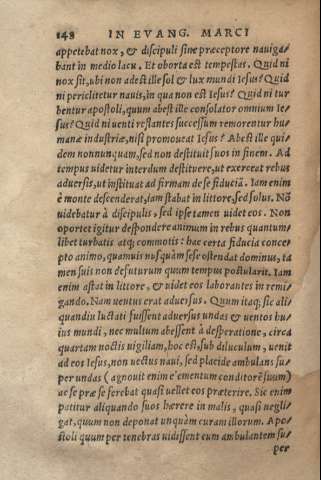 148 IN EVANG. MARCI
appetebat nox, & discipuli sine præceptore nauiga/
bant in medio lacu. Et oborta est tempestas. Quid ni
nox sit, ubi non adest ille sol & lux mundi Iesus? Quid
ni periclitetur nauis, in qua non est Iesus? Quid ni tur
bentur apostoli, quum abest ille consolator omnium Ie/
sus? Quid ni uenti reflantes successum remorentur hu
manæ industriæ, nisi promoueat Iesus? Abest ille qui/
dem nonnunquam, sed non destituit suos in finem. Ad
tempus uidetur interdum destituere, ut exerceat rebus
aduersis, ut instituat ad firmam de se fiduciā. Iam enim
è monte descenderat, iam stabat in littore, sed solus. Nō
uidebatur à discipulis, sed ipse tamen uidet eos. Non
oportet igitur despondere animum in rebus quantum/
libet turbatis atq; commotis: hac certa fiducia conce/
pto animo, quamuis nusquàm sese ostendat dominus, ta
men suis non defuturum quum tempus postularit. Iam
enim astat in littore, & uidet eos laborantes in remi/
gando. Nam uentus erat aduersus. Quum itaq; sic ali/
quandiu luctati fuissent aduersus undas & uentos hu/
ius mundi, nec multum abessent à desperatione, circa
quartam noctis uigiliam, hoc est, sub diluculum, uenit
ad eos Iesus, non uectus naui, sed placide ambulans su/
per undas (agnouit enim elementum conditorē suum)
ac se præ se ferebat quasi uellet eos præterire. Sic enim
patitur aliquando suos hærere in malis, quasi negli/
gat, quum non deponat unquàm curam illorum. Apo/
stoli quum per tenebras uidissent eum ambulantem su/
per